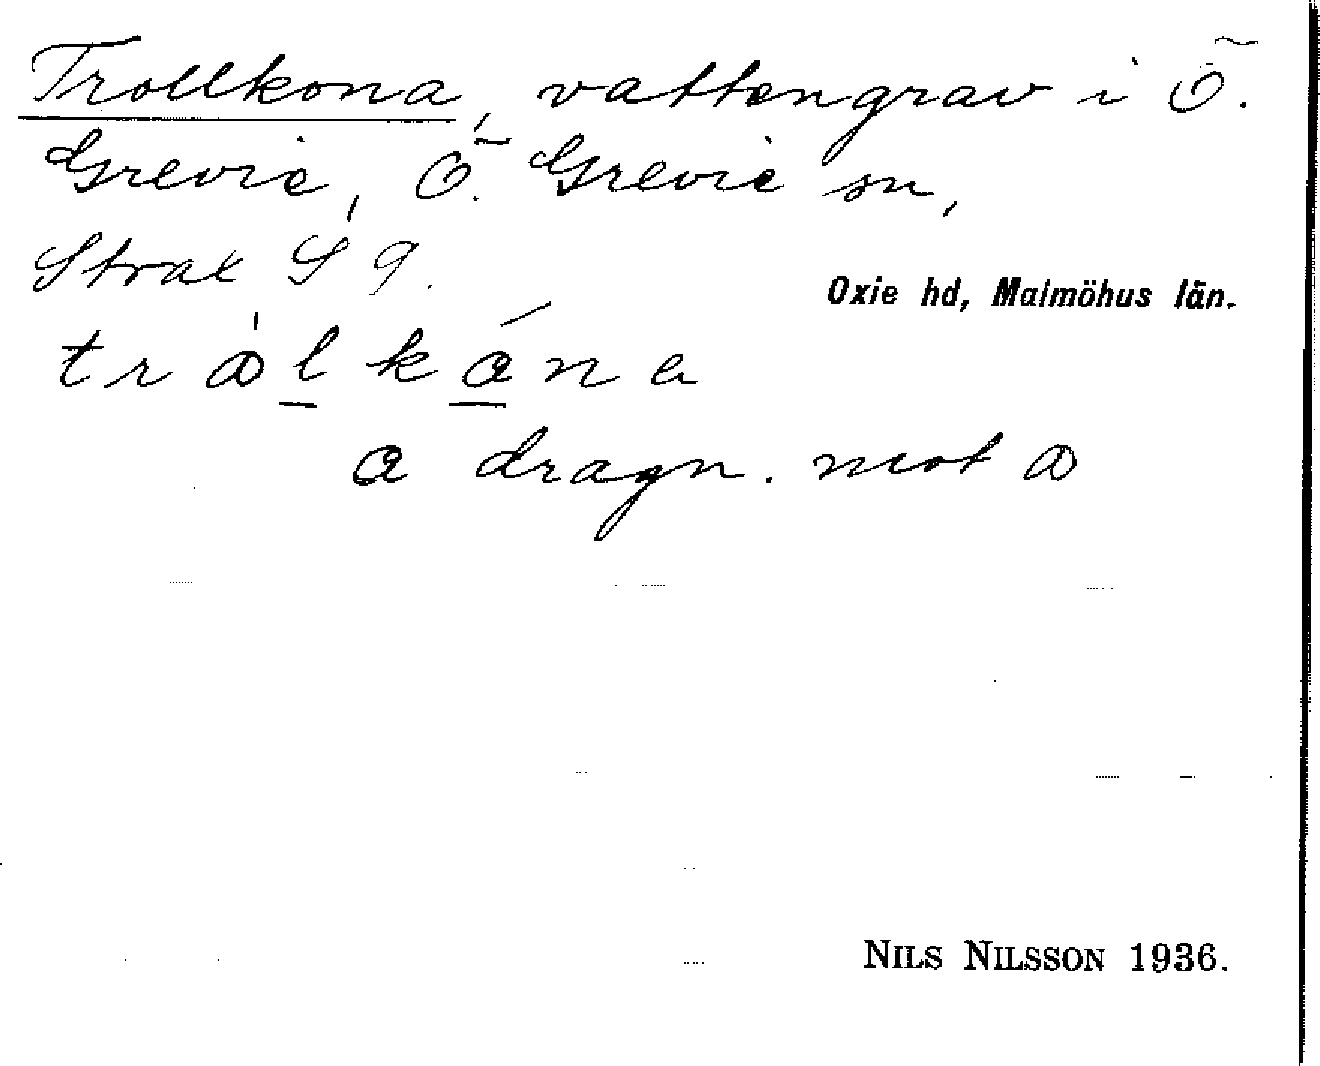 Trollkona, vattengrav i Ö.
Grevie, Ö. Grevie sn,
Strax S 9.
Oxie hd, Malmöhus län.
a dragn. mot
NILS NILSSON 1936.